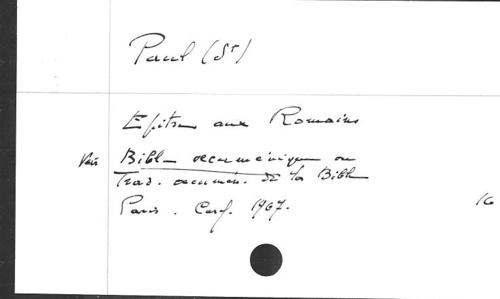 Paul (St)
Epitre aux Romains
Voir Bible oecuménique ou
Trad. oecumén. de la Bible
Paris. Cerf. 1967.
16